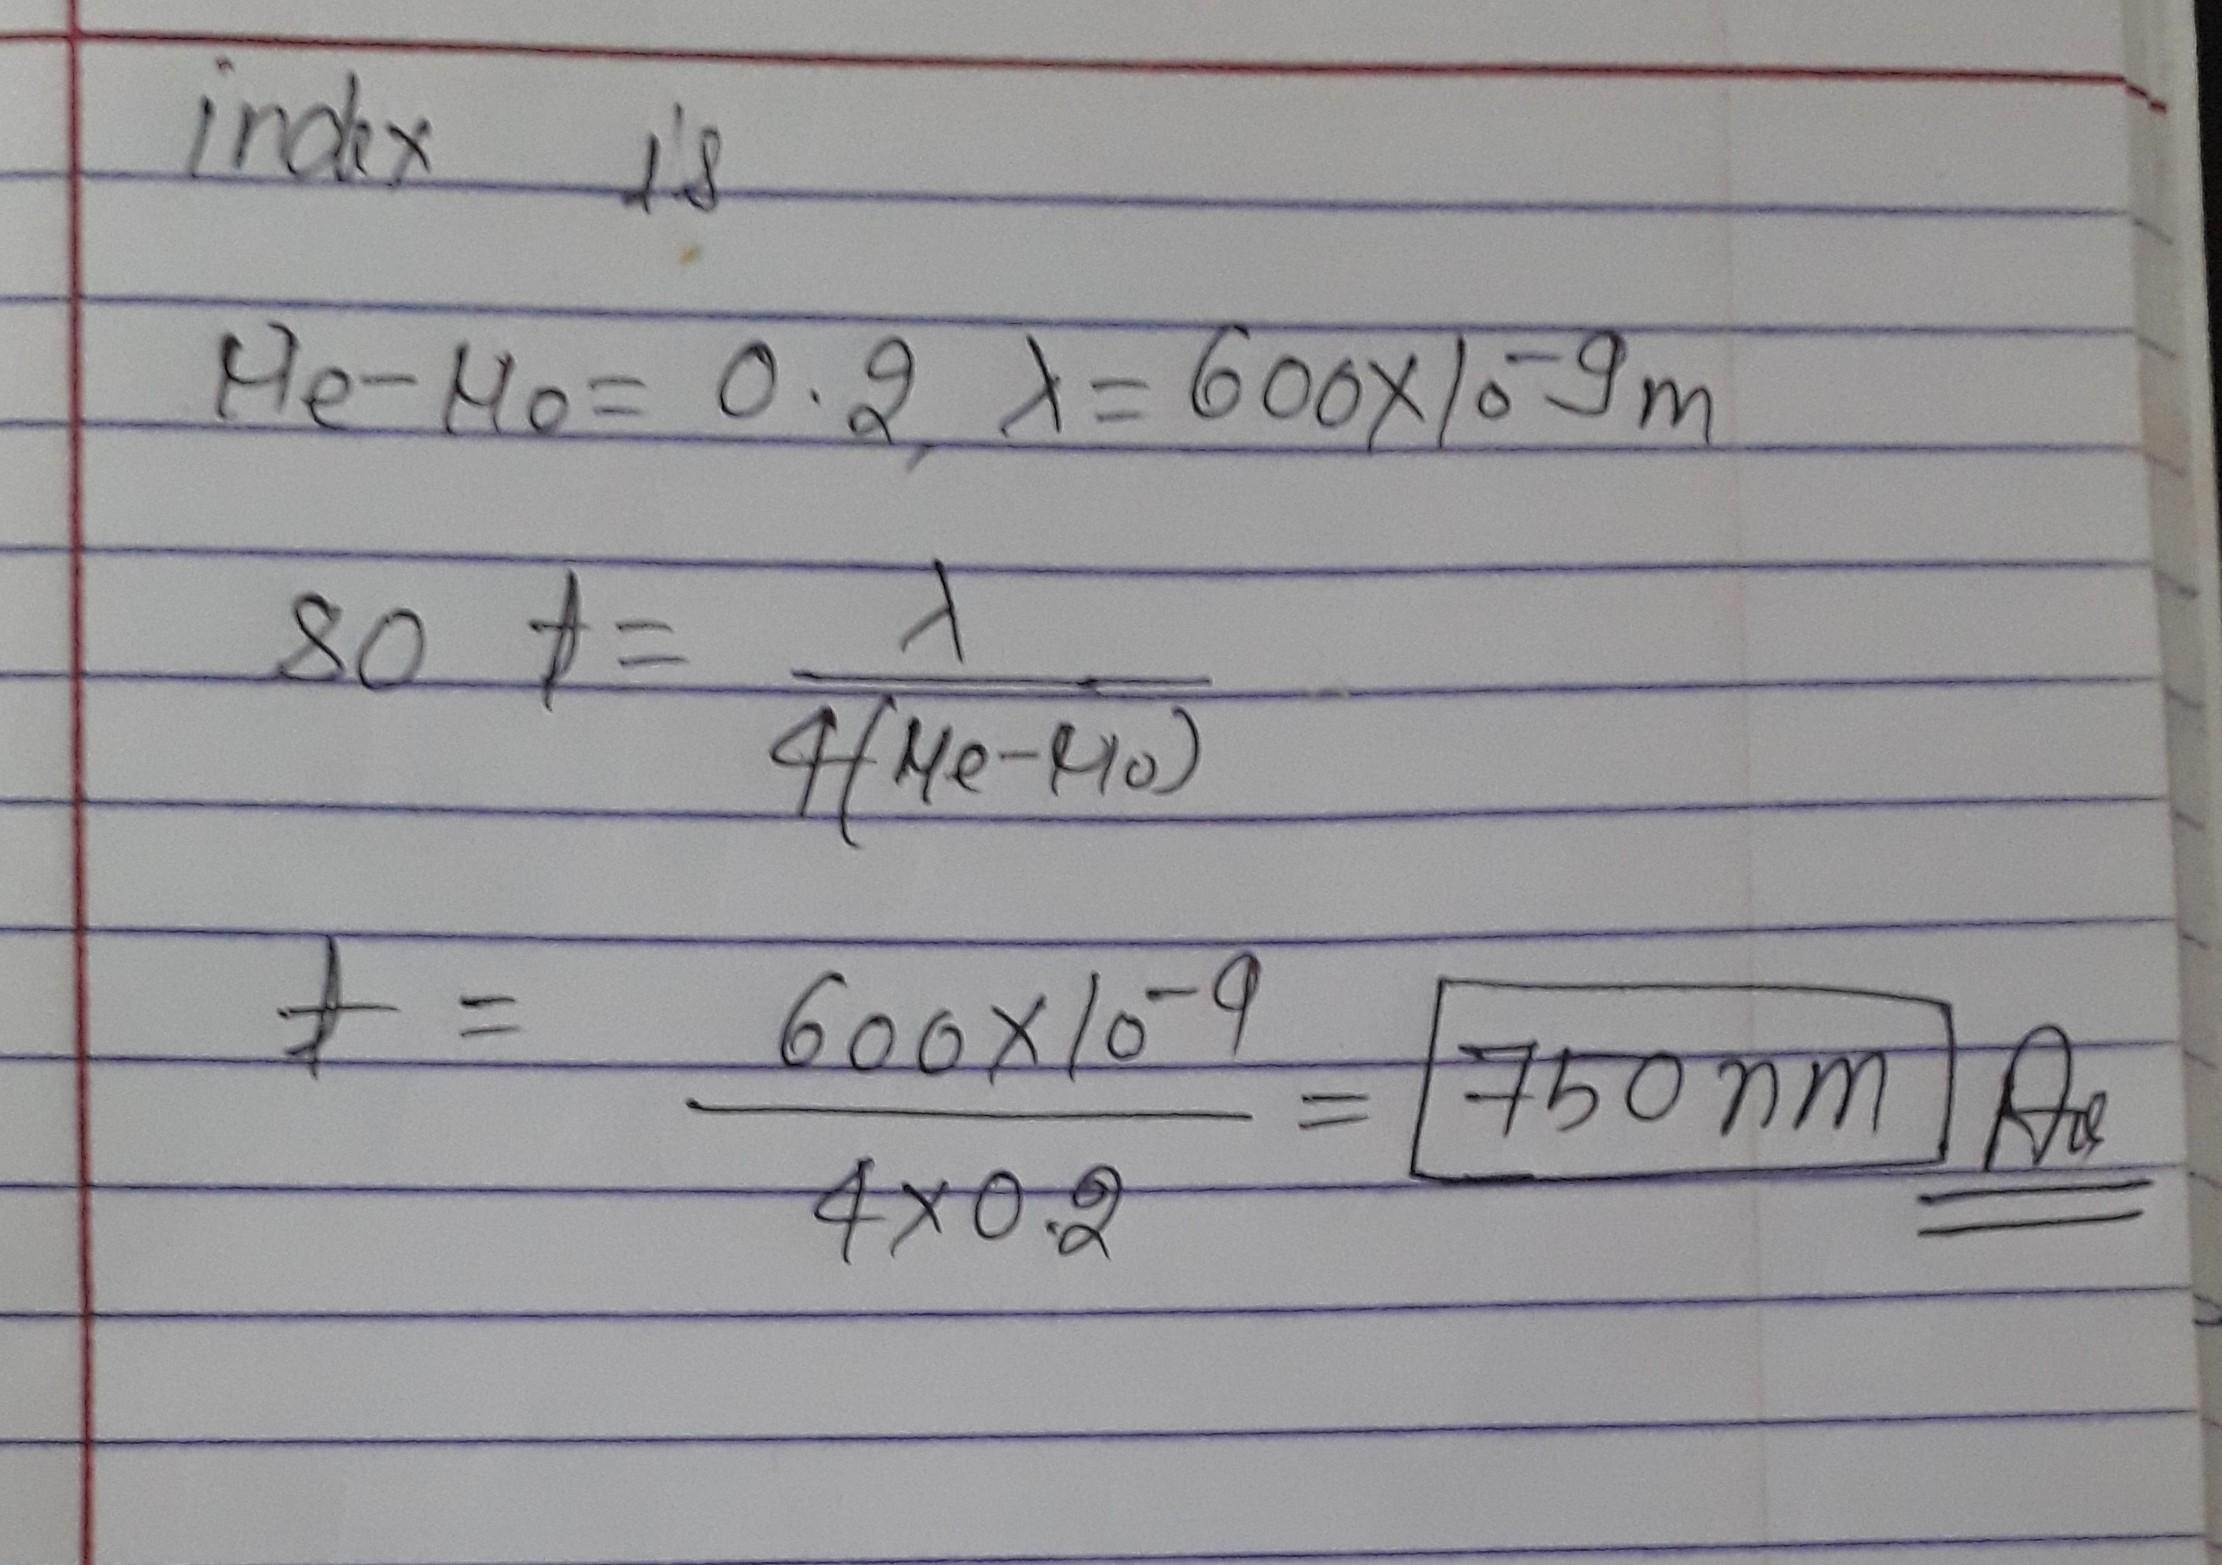 index is
μe-μo= 0.2, λ= 600x10^-9m
so t= λ/4(μe-μo)
t = 600x10^-9/4x0.2 = 750nm Ans